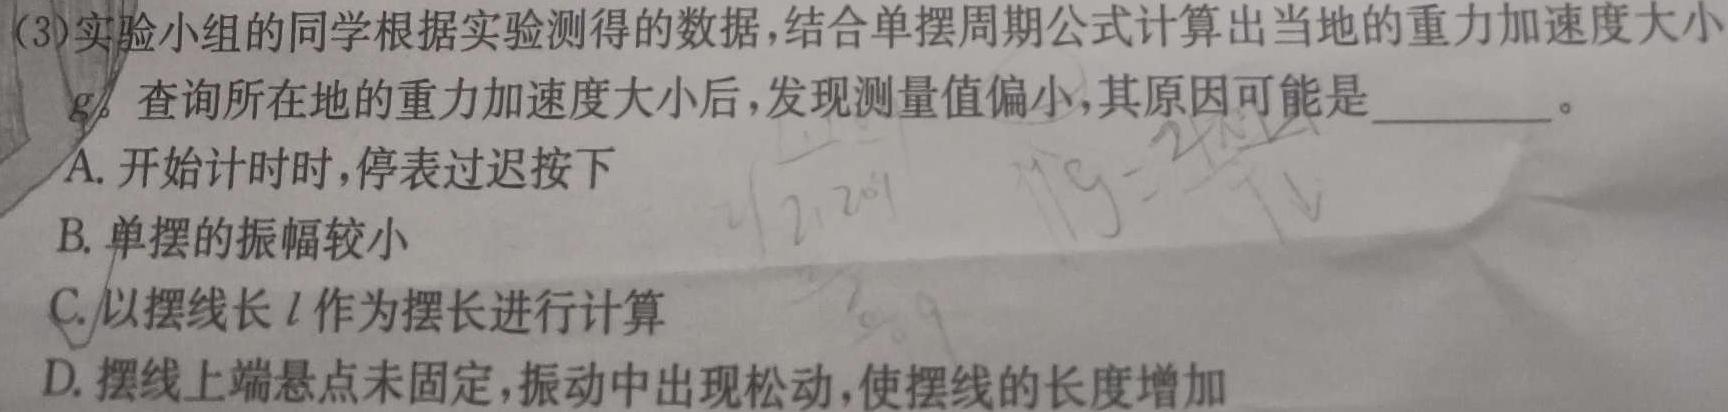 (3)实验小组的同学根据实验测得的数据,结合单摆周期公式计算出当地的重力加速度大小
g。查询所在地的重力加速度大小后,发现测量值偏小,其原因可能是________。
A. 开始计时时,停表过迟按下
B. 单摆的振幅较小
C. 以摆线长 l 作为摆长进行计算
D. 摆线上端悬点未固定,振动中出现松动,使摆线的长度增加